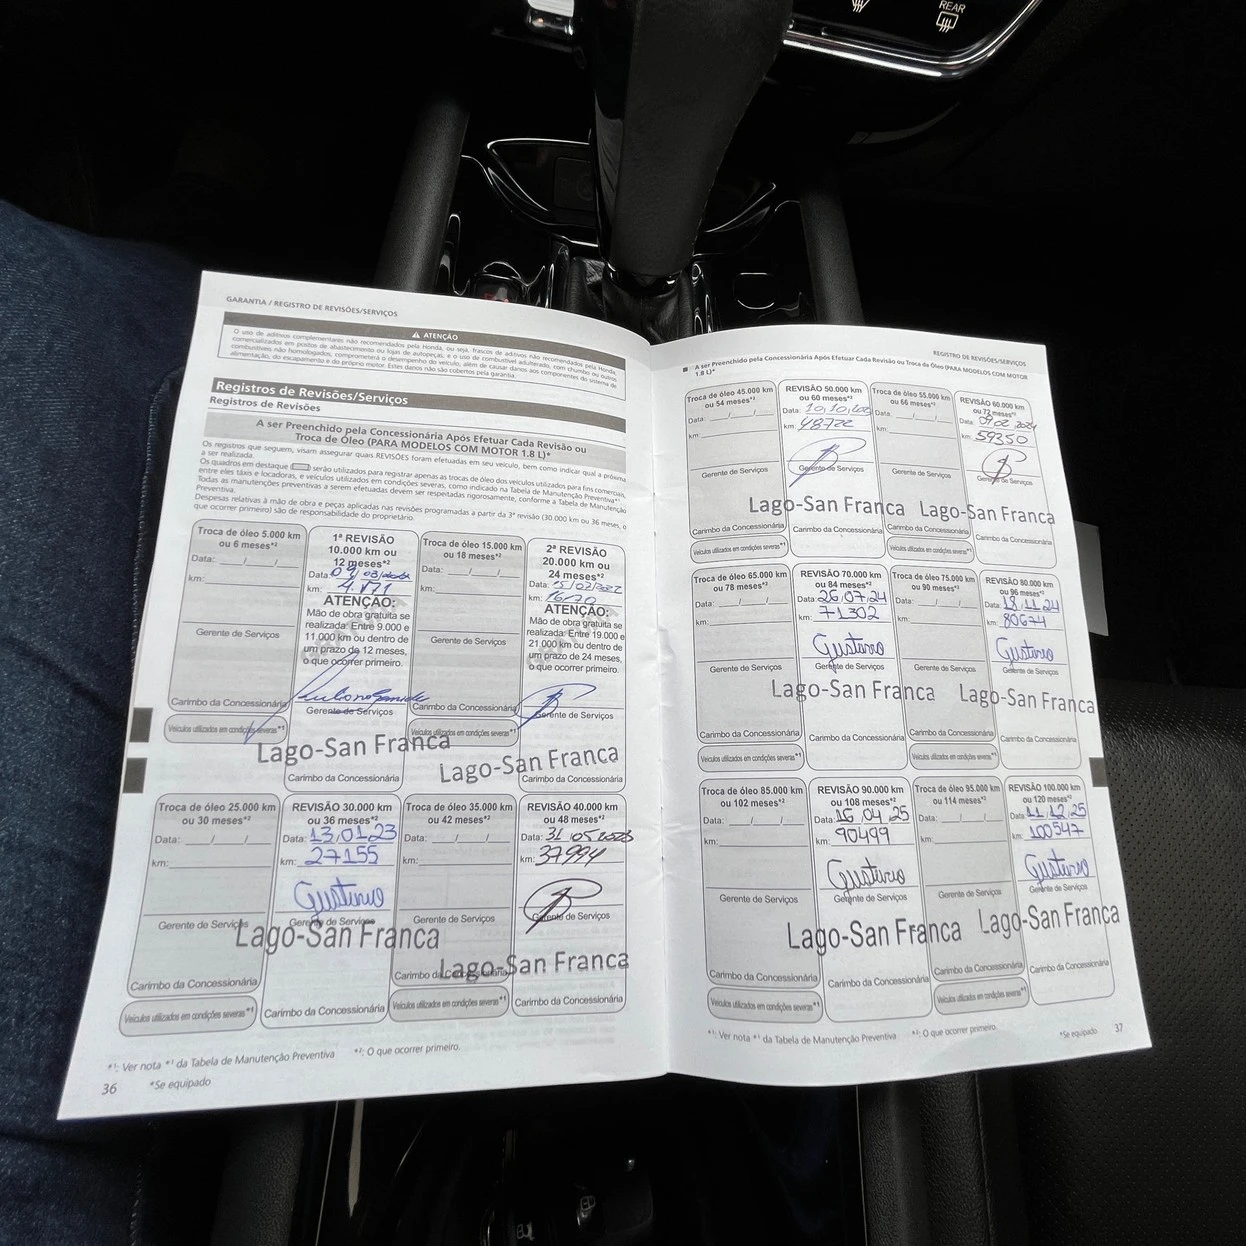 REAR
GARANTIA / REGISTRO DE REVISÕES/SERVIÇOS
ATENÇÃO
O uso de aditivos complementares não recomendados pela Honda, ou seja, frascos de aditivos não recomendados pela Honda,
comercializados em postos de abastecimento ou lojas de autopeças, e o uso de combustível adulterado, com chumbo ou outros
combustíveis não homologados, comprometerá o desempenho do veículo, além de causar danos aos componentes do sistema de
alimentação, do escapamento e do próprio motor. Estes danos não são cobertos pela garantia.
Registros de Revisões/Serviços
Registros de Revisões
A ser Preenchido pela Concessionária Após Efetuar Cada Revisão ou
Troca de Óleo (PARA MODELOS COM MOTOR 1.8 L)*
Os registros que seguem, visam assegurar quais REVISÕES foram efetuadas em seu veículo, bem como indicar qual a próxima
a ser realizada.
Os quadros em destaque serão utilizados para registrar apenas as trocas de óleo dos veículos utilizados para fins comerciais,
entre eles táxis e locadoras, e veículos utilizados em condições severas, como indicado na Tabela de Manutenção Preventiva*¹.
Todas as manutenções preventivas a serem efetuadas devem ser respeitadas rigorosamente, conforme a Tabela de Manutenção
Preventiva.
Despesas relativas à mão de obra e peças aplicadas nas revisões programadas a partir da 3ª revisão (30.000 km ou 36 meses, o
que ocorrer primeiro) são de responsabilidade do proprietário.
Troca de óleo 5.000 km
ou 6 meses*²
Data: ___/___/___
km:
Gerente de Serviços
Carimbo da Concessionária
Veículos utilizados em condições severas*¹
1ª REVISÃO
10.000 km ou
12 meses*²
Data:
km:
ATENÇÃO:
Mão de obra gratuita se
realizada: Entre 9.000 e
11.000 km ou dentro de
um prazo de 12 meses,
o que ocorrer primeiro.
Gerente de Serviços
Lago-San Franca
Carimbo da Concessionária
Troca de óleo 15.000 km
ou 18 meses*²
Data: ___/___/___
km:
Gerente de Serviços
Carimbo da Concessionária
Veículos utilizados em condições severas*¹
2ª REVISÃO
20.000 km ou
24 meses*²
Data:
km:
ATENÇÃO:
Mão de obra gratuita se
realizada: Entre 19.000 e
21.000 km ou dentro de
um prazo de 24 meses,
o que ocorrer primeiro.
Gerente de Serviços
Lago-San Franca
Carimbo da Concessionária
Troca de óleo 25.000 km
ou 30 meses*²
Data: ___/___/___
km:
Gerente de Serviços
Carimbo da Concessionária
Veículos utilizados em condições severas*¹
REVISÃO 30.000 km
ou 36 meses*²
Data: 13.01.23
km: 27155
Gustavo
Gerente de Serviços
Lago-San Franca
Carimbo da Concessionária
Troca de óleo 35.000 km
ou 42 meses*²
Data: ___/___/___
km:
Gerente de Serviços
Carimbo da Concessionária
Veículos utilizados em condições severas*¹
REVISÃO 40.000 km
ou 48 meses*²
Data: 31 05 2023
km: 37994
Gerente de Serviços
Lago-San Franca
Carimbo da Concessionária
*¹: Ver nota *¹ da Tabela de Manutenção Preventiva *²: O que ocorrer primeiro.
36 *Se equipado
REGISTRO DE REVISÕES/SERVIÇOS
A ser Preenchido pela Concessionária Após Efetuar Cada Revisão ou Troca de Óleo (PARA MODELOS COM MOTOR
1.8 L)*
Troca de óleo 45.000 km
ou 54 meses*²
Data: ___/___/___
km:
Gerente de Serviços
Carimbo da Concessionária
Veículos utilizados em condições severas*¹
REVISÃO 50.000 km
ou 60 meses*²
Data: 10.10.2023
km: 48722
Gerente de Serviços
Lago-San Franca
Carimbo da Concessionária
Troca de óleo 55.000 km
ou 66 meses*²
Data: ___/___/___
km:
Gerente de Serviços
Carimbo da Concessionária
Veículos utilizados em condições severas*¹
REVISÃO 60.000 km
ou 72 meses*²
Data: 02 2024
km: 59350
Gerente de Serviços
Lago-San Franca
Carimbo da Concessionária
Troca de óleo 65.000 km
ou 78 meses*²
Data: ___/___/___
km:
Gerente de Serviços
Carimbo da Concessionária
Veículos utilizados em condições severas*¹
REVISÃO 70.000 km
ou 84 meses*²
Data: 26.07.24
km: 71302
Gustavo
Gerente de Serviços
Lago-San Franca
Carimbo da Concessionária
Troca de óleo 75.000 km
ou 90 meses*²
Data: ___/___/___
km:
Gerente de Serviços
Carimbo da Concessionária
Veículos utilizados em condições severas*¹
REVISÃO 80.000 km
ou 96 meses*²
Data: 18.11.24
km: 80674
Gustavo
Gerente de Serviços
Lago-San Franca
Carimbo da Concessionária
Troca de óleo 85.000 km
ou 102 meses*²
Data: ___/___/___
km:
Gerente de Serviços
Carimbo da Concessionária
Veículos utilizados em condições severas*¹
REVISÃO 90.000 km
ou 108 meses*²
Data: 16 04 25
km: 90499
Gustavo
Gerente de Serviços
Lago-San Franca
Carimbo da Concessionária
Troca de óleo 95.000 km
ou 114 meses*²
Data: ___/___/___
km:
Gerente de Serviços
Carimbo da Concessionária
Veículos utilizados em condições severas*¹
REVISÃO 100.000 km
ou 120 meses*²
Data: 11.12.25
km: 100547
Gustavo
Gerente de Serviços
Lago-San Franca
Carimbo da Concessionária
*¹: Ver nota *¹ da Tabela de Manutenção Preventiva *²: O que ocorrer primeiro.
*Se equipado 37